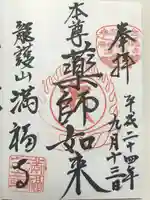 奉拝
平成二十四年
九月十三日
本尊
薬師如来
龍護山
満福寺